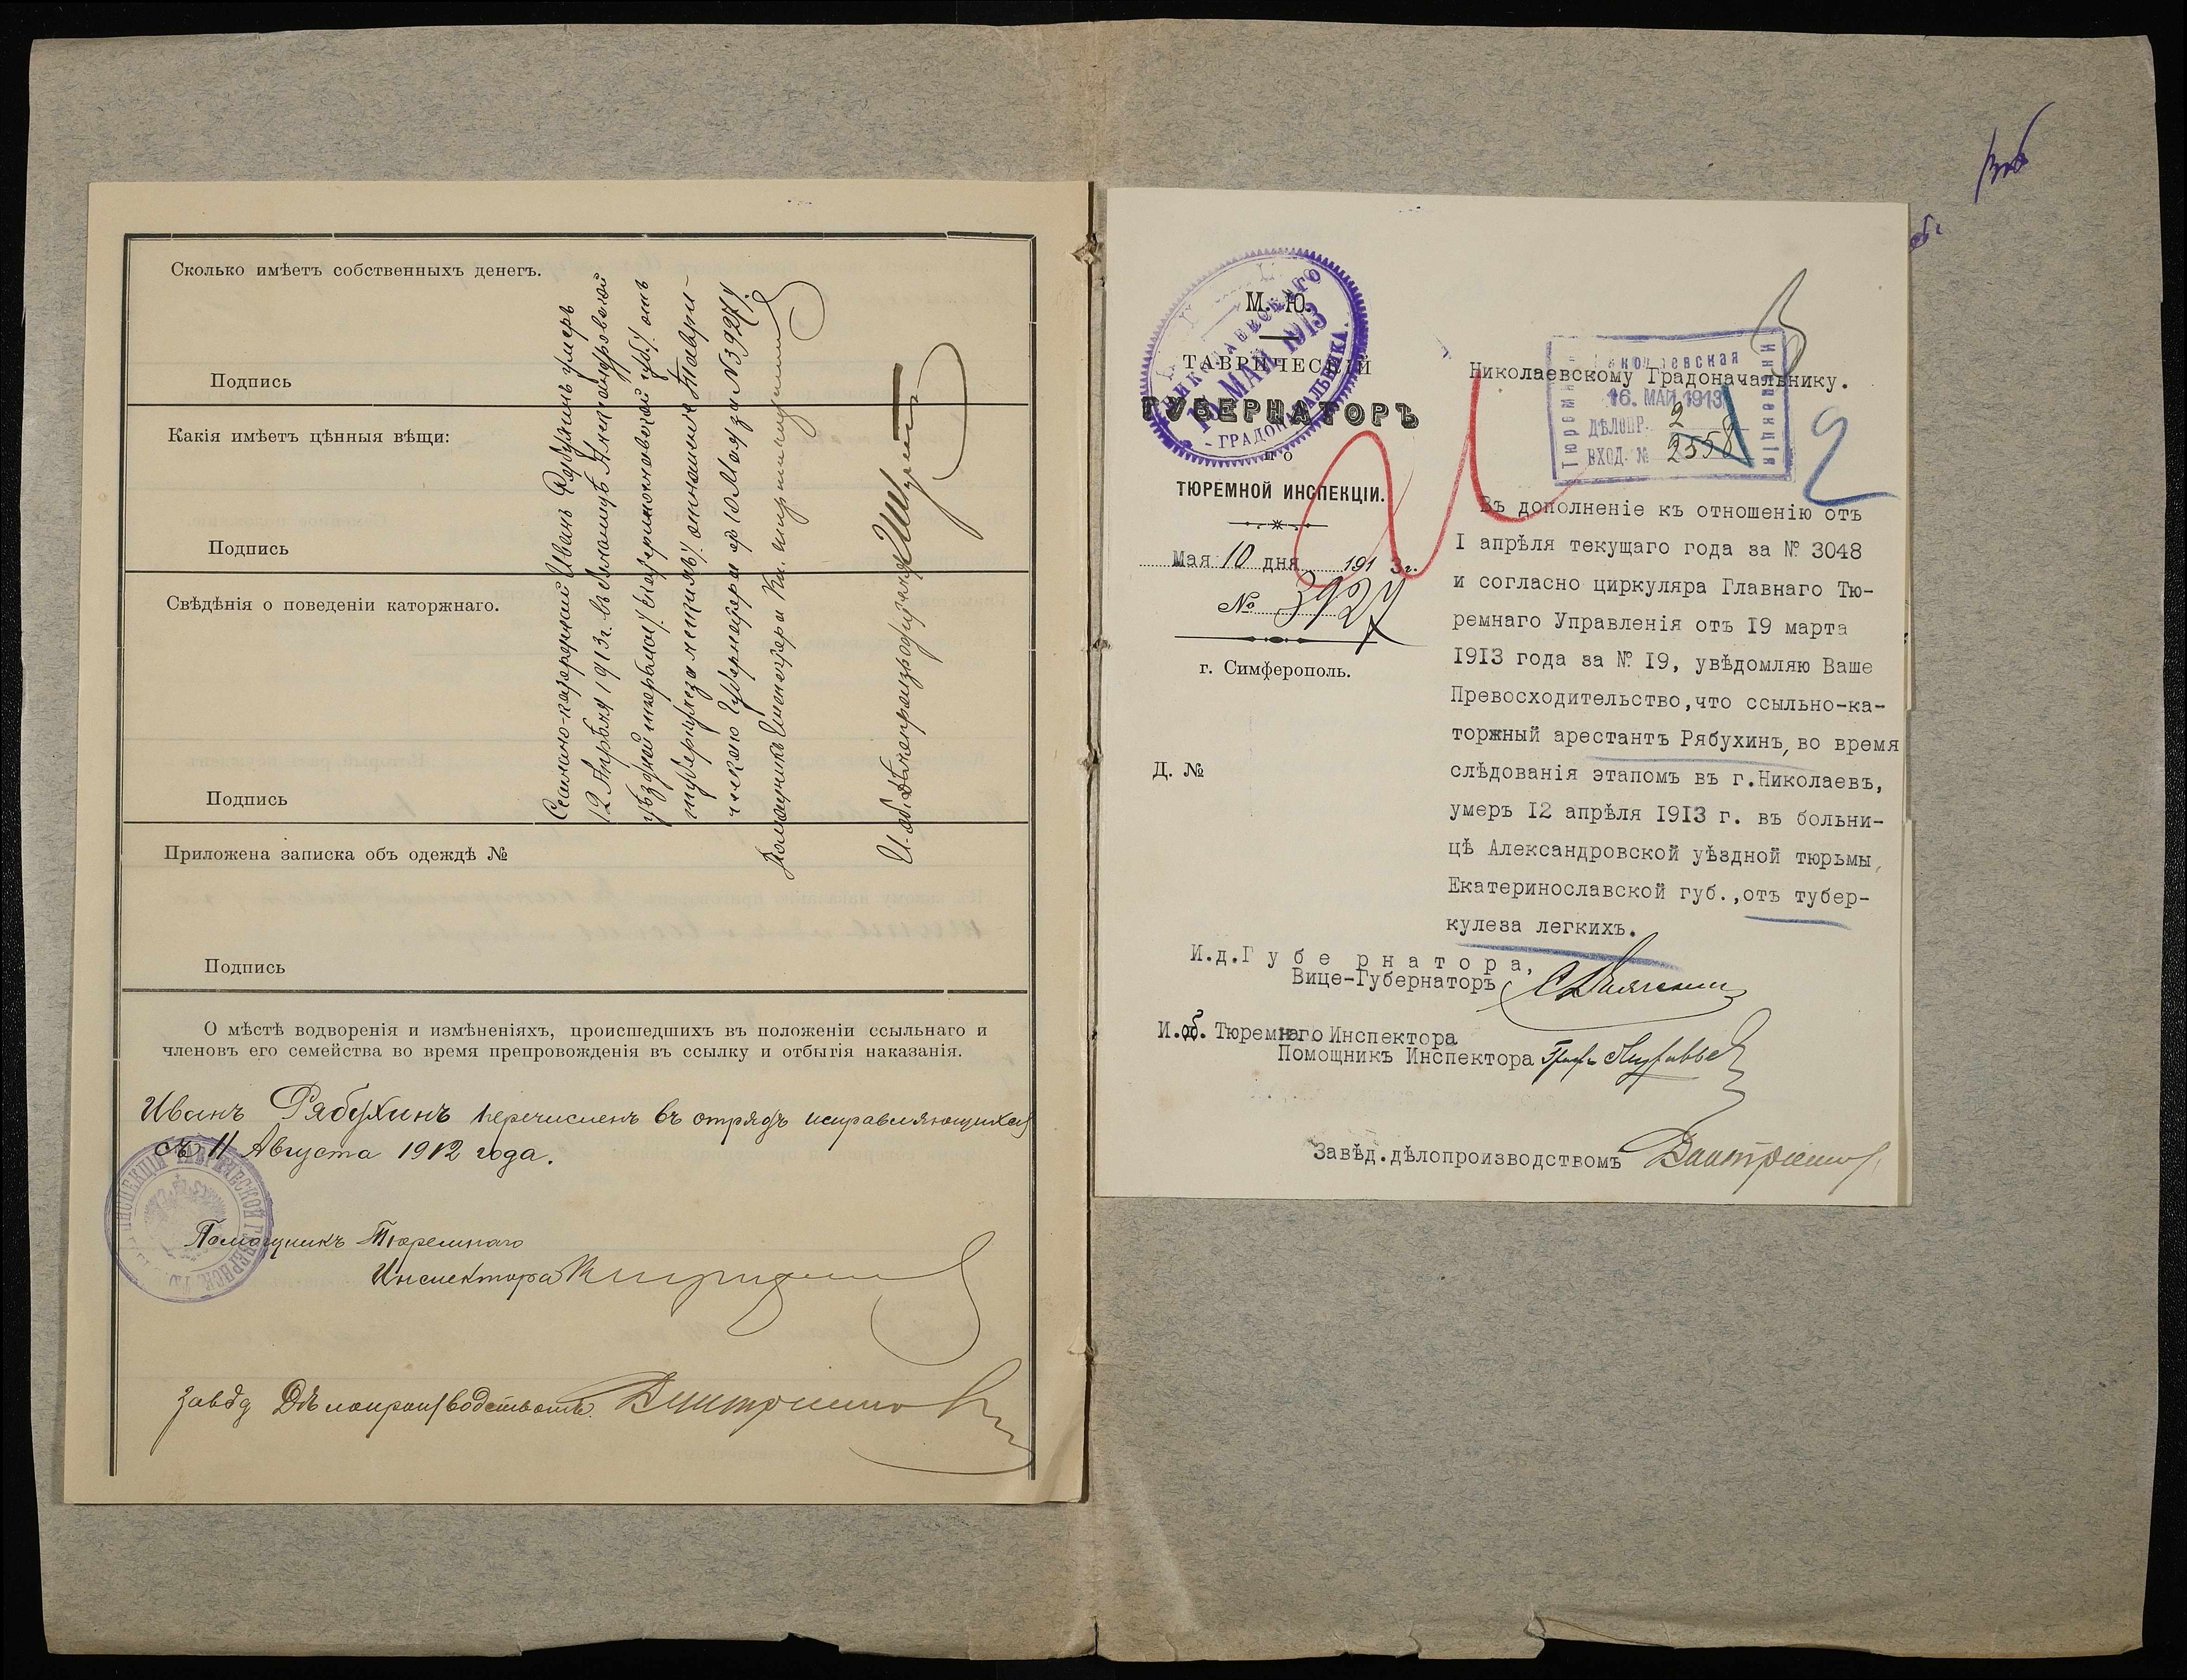 Сколько имѣетъ собственныхъ денегъ.
Подпись
Какія имѣетъ цѣнныя вѣщи:
Подпись
Свѣдѣнія о поведеніи каторжнаго.
Подпись
Приложена записка объ одеждѣ №
Подпись
Ссыльно-каторжный Иванъ Рябухинъ умеръ
12 Апрѣля 1913 г. въ больницѣ Александровской
уѣздной тюрьмы, Екатеринославской губ., отъ
туберкулеза легкихъ. отношеніе Таври-
ческаго Губернатора отъ 10 Мая за № 3927.
Помощникъ Инспектора Кн.
И. об. Дѣлопроизводителя
О мѣстѣ водворенія и измѣненіяхъ, происшедшихъ въ положеніи ссыльнаго и
членовъ его семейства во время препровожденія въ ссылку и отбытія наказанія.
Иванъ Рябухинъ перечисленъ въ отрядъ исправляющихся
съ 11 Августа 1912 года.
Помощникъ Тюремнаго
Инспектора
Завѣд Дѣлопроизводствомъ
М. Ю.
ТАВРИЧЕСКІЙ
ГУБЕРНАТОРЪ
по
ТЮРЕМНОЙ ИНСПЕКЦІИ.
Мая 10 дня 1913 г.
№ 3927
г. Симферополь.
Д. №
НИКОЛАЕВСКАГО
16 МАЙ 1913
ГРАДОНАЧАЛЬНИКА.
Николаевская
Тюремн
Инспекція
16. МАЙ 1913
ДѢЛОПР. 2
ВХОД. № 2558
2
Николаевскому Градоначальнику.
Въ дополненіе къ отношенію отъ
I апрѣля текущаго года за № 3048
и согласно циркуляра Главнаго Тю-
ремнаго Управленія отъ I9 марта
I9I3 года за № I9, увѣдомляю Ваше
Превосходительство,что ссыльно-ка-
торжный арестантъ Рябухинъ, во время
слѣдованія этапомъ въ г.Николаевъ,
умеръ I2 апрѣля I9I3 г. въ больни-
цѣ Александровской уѣздной тюрьмы,
Екатеринославской губ.,отъ тубер-
кулеза легкихъ.
И.д.Губернатора,
Вице-Губернаторъ
И.об. Тюремнаго Инспектора
Помощникъ Инспектора Графъ Муравьев
Завѣд.дѣлопроизводствомъ